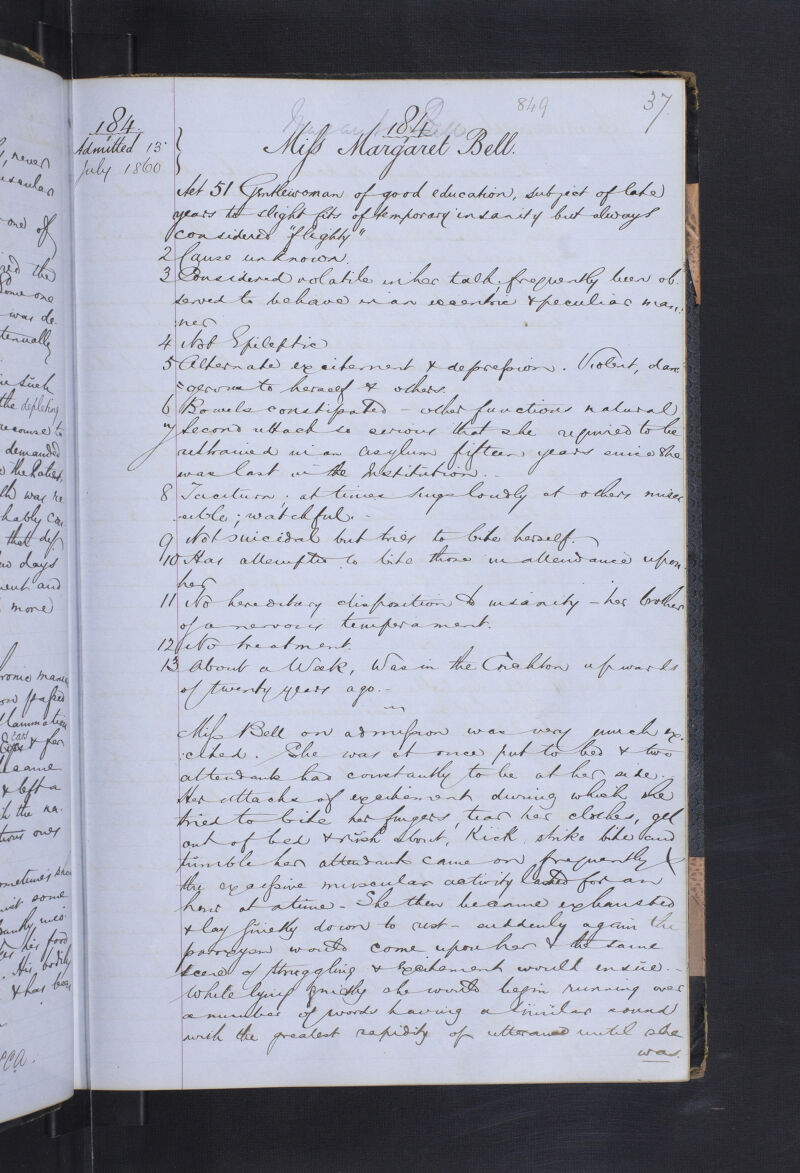 849
37.
184
184
Admitted 13
July 1860
Miss Margaret Bell.
Aet 51 Gentlewoman of good education, subject of late
years to slight fits of temporary insanity but always
considered "flighty"
2 Cause unknown.
3 Considered volatile in her talk, frequently been ob-
served to behave in an excentric & peculiar man-
ner
4 Not Epileptic
5 Alternate excitement & depression. Violent, dan-
gerous to herself & others.
6 Bowels constipated - other functions natural
7 Second attack so serious that she required to be
restrained in an asylum fifteen years since she
was last in the Institution.
8 Taciturn. at times sings loudly at others miser
able; watchful.
9 Not suicidal but tries to bite herself.
10 Has attempted to bite those in attendance upon
her
11 No hereditary disposition to insanity - her brother
of a nervous temperament.
12 No treatment.
13 About a Week, Was in the Crichton upwards
of twenty years ago.
Miss Bell on admission was very much ex-
cited. She was at once put to bed & two
attendants had constantly to be at her side.
Her attacks of excitement during which she
tried to bite her fingers, tear her clothes, get
out of bed & rush about, Kick, strike bite and
tumble her attendants came on frequently &
the excessive muscular activity lasted for an
hour at a time - She then became exhausted
& lay quietly down to rest - suddenly again the
paroxysm would come upon her & the same
scene of struggling & excitement would ensue.
While lying quietly she would begin running over
a number of words having a similar sound
with the greatest rapidity of utterance until she
was